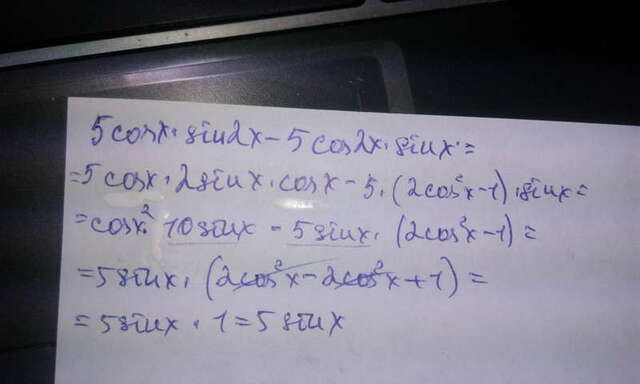 5cosx·sin2x-5cos2x·sinx=
=5cosx·2sinx·cosx-5·(2cos²x-1)·sinx=
=cosx²·10sinx-5sinx·(2cos²x-1)=
=5sinx·(2cos²x-2cos²x+1)=
=5sinx·1=5sinx